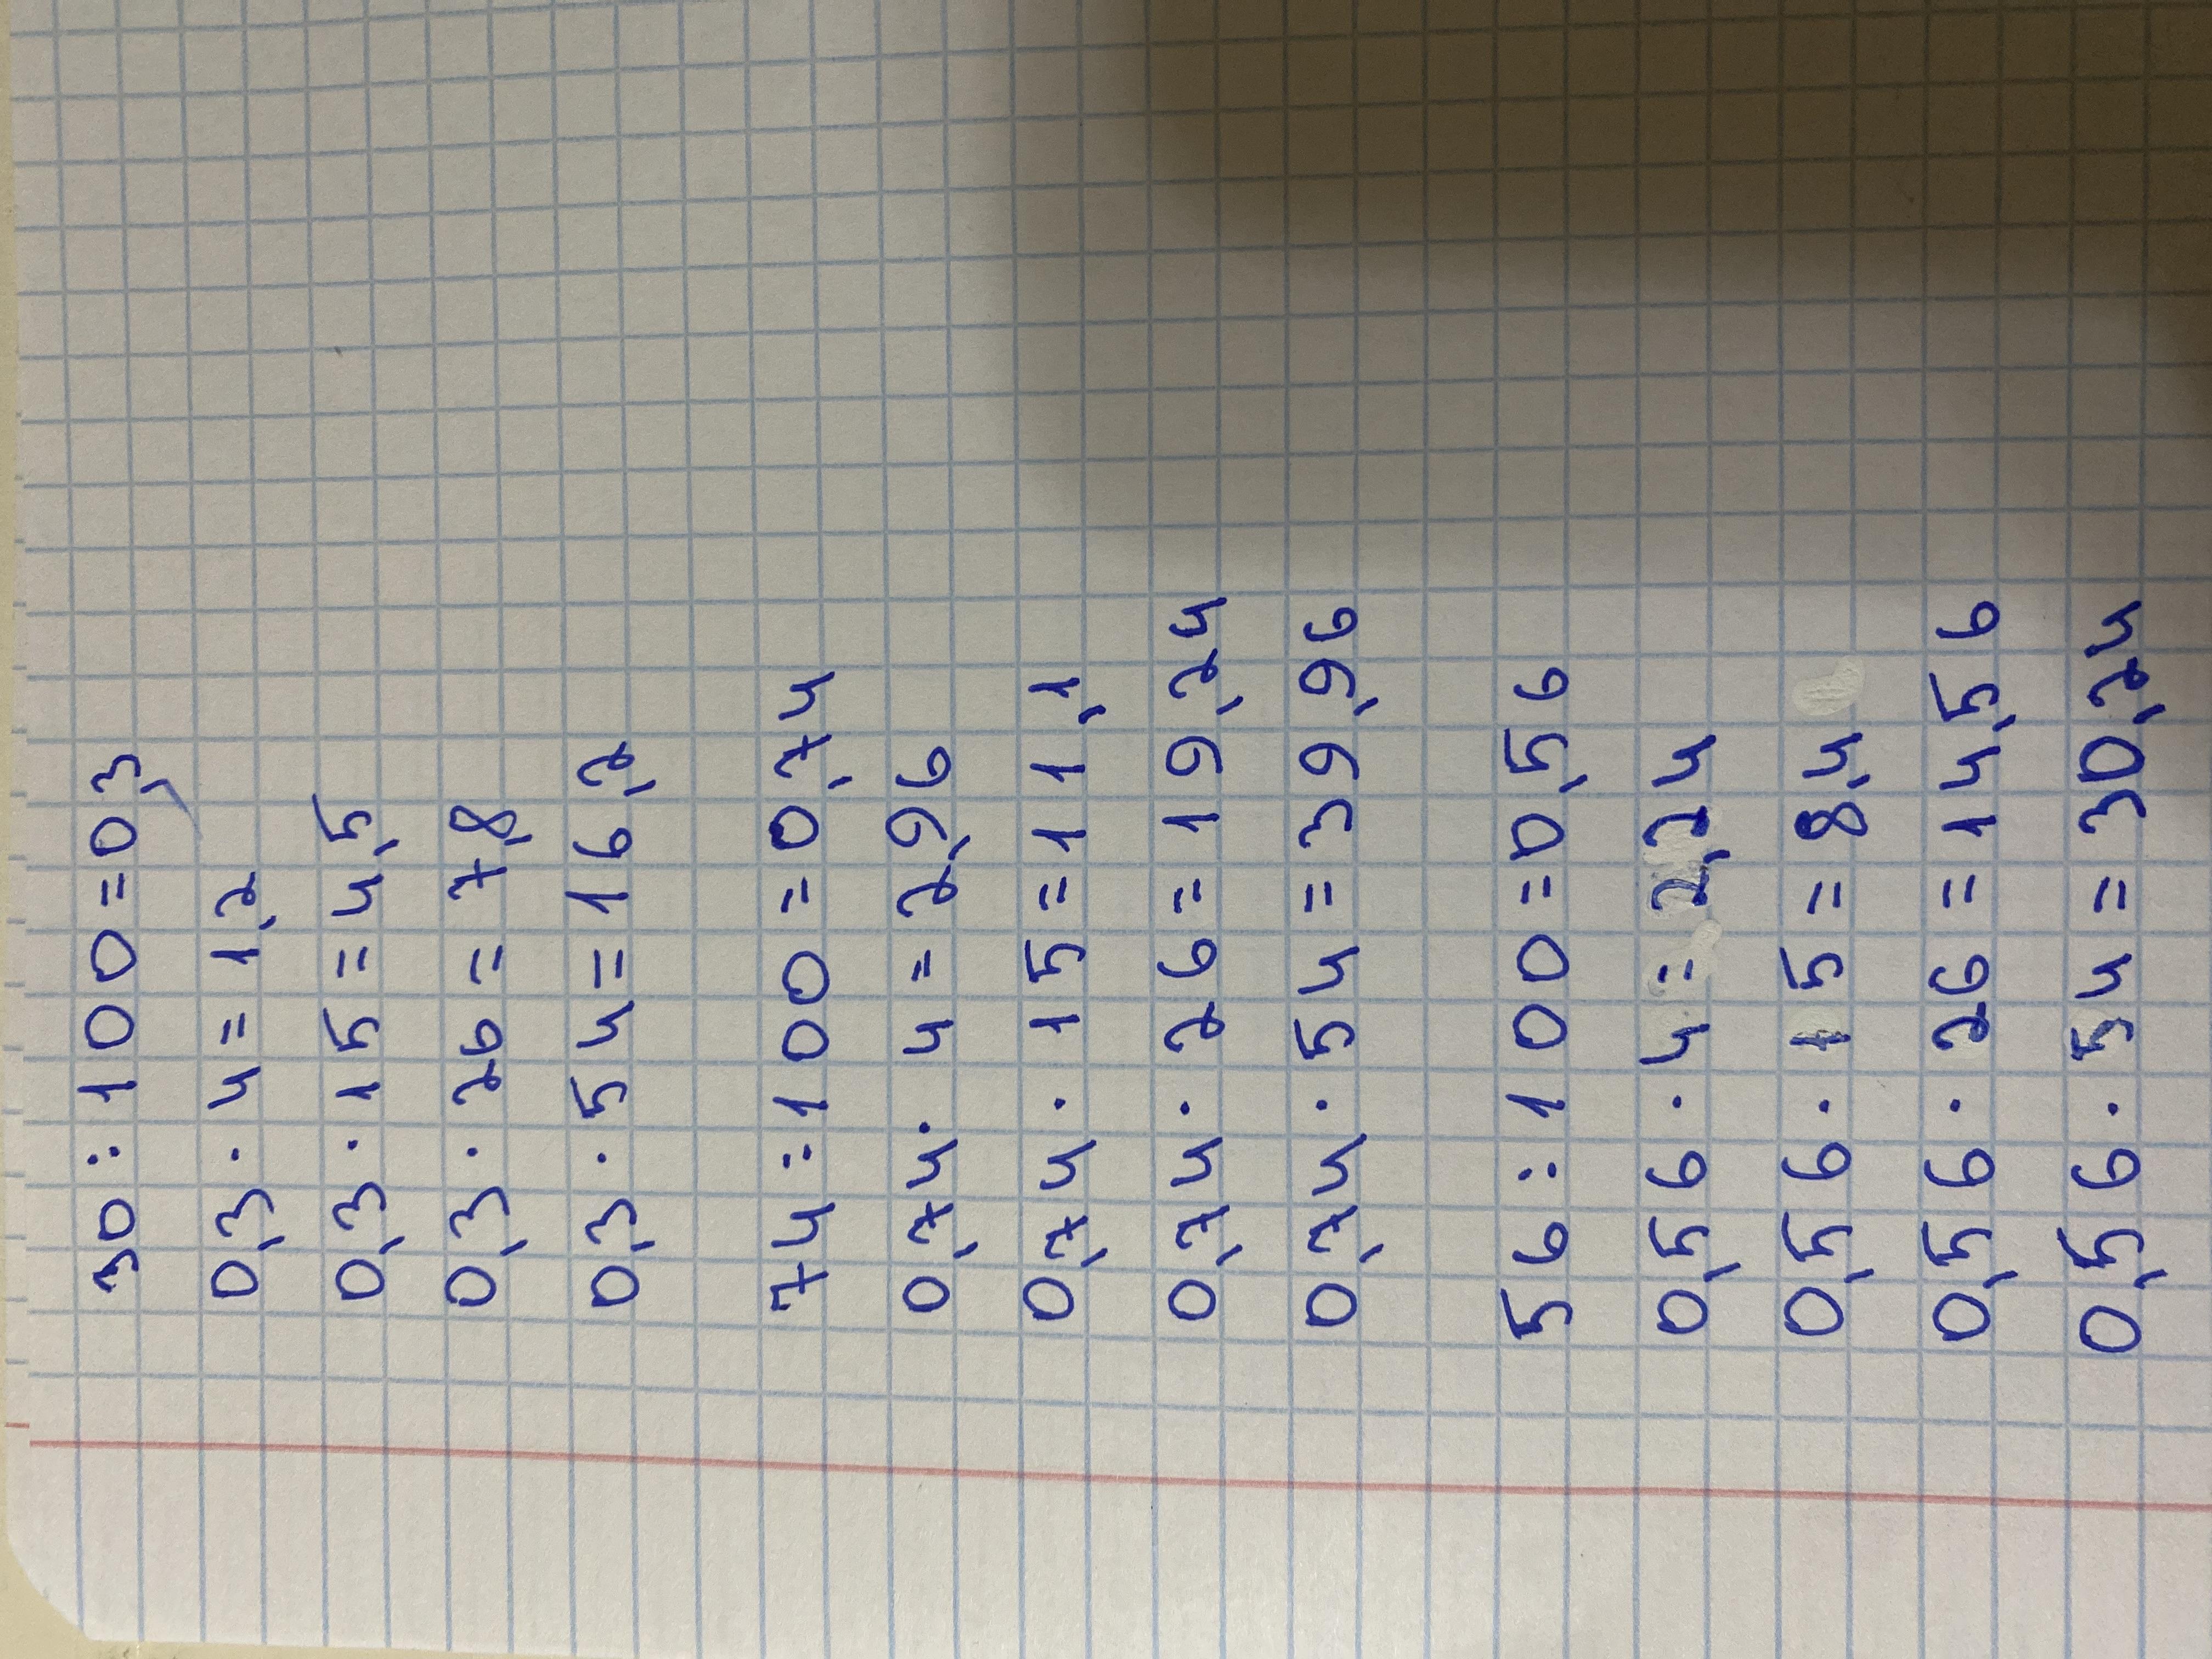 30:100=0,3
0,3·4=1,2
0,3·15=4,5
0,3·26=7,8
0,3·54=16,2
74:100=0,74
0,74·4=2,96
0,74·15=11,1
0,74·26=19,24
0,74·54=39,96
56:100=0,56
0,56·4=2,24
0,56·15=8,4
0,56·26=14,56
0,56·54=30,24